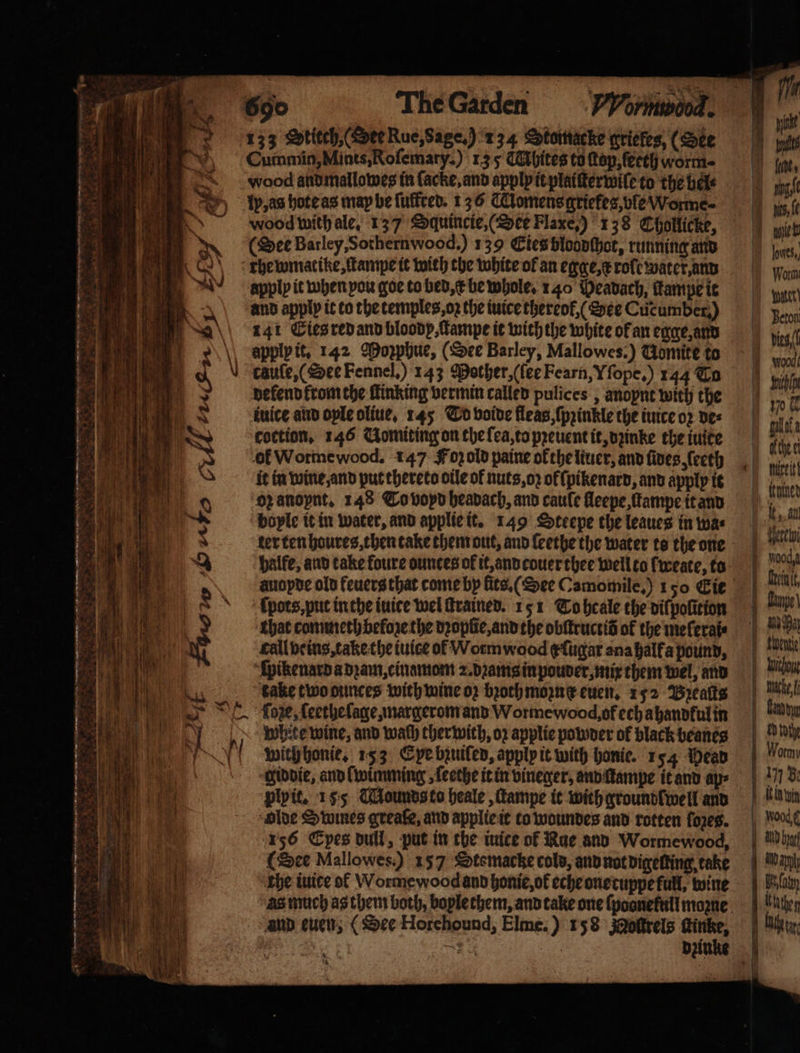 690 The Garden VVormwood.
133 Stitch,(See Rue,Sage.) 134 Stomacke griefes, (See
Cummin,Mints,Rosemary.) 135 Whites to stop,seeth worm-
wood and mallowes in sacke,and apply it plaisterwise to the bel-
ly,as hote as may be suffred. 136 Womens griefes,vse Worme-
wood with ale. 137 Squincie,(See Flaxe,) 138 Chollicke,
(See Barley,Sothernwood.) 139 Eies bloodshot, running and
rhewmatike,stampe it with the white of an egge,& rose water,and
apply it when you goe to bed,& be whole. 140 Headach, stampe it
and apply it to the temples,or the iuice thereof,(See Cucumber,)
141 Eies red and bloody,stampe it with the white of an egge,and
apply it. 142 Morphue, (See Barley, Mallowes.) Vomite to
cause,(See Fennel.) 143 Mother,(see Fearn,Ysope.) 144 To
defend from the stinking vermin called pulices , anoynt with the
iuice and oyle oliue. 145 To voide fleas,sprinkle the iuice or de-
coction. 146 Vomiting on the sea,to preuent it,drinke the iuice
of Wormewood. 147 For old paine of the liuer, and sides,seeth
it in wine,and put thereto oile of nuts,or of spikenard, and apply it
or anoynt. 148 To voyd headach, and cause sleepe,stampe it and
boyle it in water, and applie it. 149 Steepe the leaues in wa-
ter ten houres,then take them out, and seethe the water to the one
halfe, and take foure ounces of it,and couer thee well to sweate, to
auoyde old feuers that come by fits.(See Camomile.) 150 Eie
spots,put in the iuice wel strained. 151 To heale the disposition
that commeth before the dropsie,and the obstructiō of the meserai-
call veins,take the iuice of Wormwood & sugar ana half a pound,
spikenard a dram,cinamom 2.drams in pouder,mix them wel, and
take two ounces with wine or broth morn & euen. 152 Breasts
sore, seethe sage,margerom and Wormewood,of ech a handful in
white wine, and wash therwith, or applie powder of black beanes
with honie. 153 Eye bruised, apply it with honie. 154 Head
giddie, and swimming , seethe it in vineger, and stampe it and ap-
ply it. 155 Wounds to heale , stampe it with groundswell and
olde Swines grease, and applie it to woundes and rotten sores.
156 Eyes dull, put in the iuice of Rue and Wormewood,
(See Mallowes.) 157 Stomacke cold, and not digesting, take
the iuice of Wormewood and honie,of eche one cuppe full, wine
as much as them both, boyle them, and take one spoonefull morne
and euen, (See Horehound, Elme.) 158 Nostrels stinke,
drinke